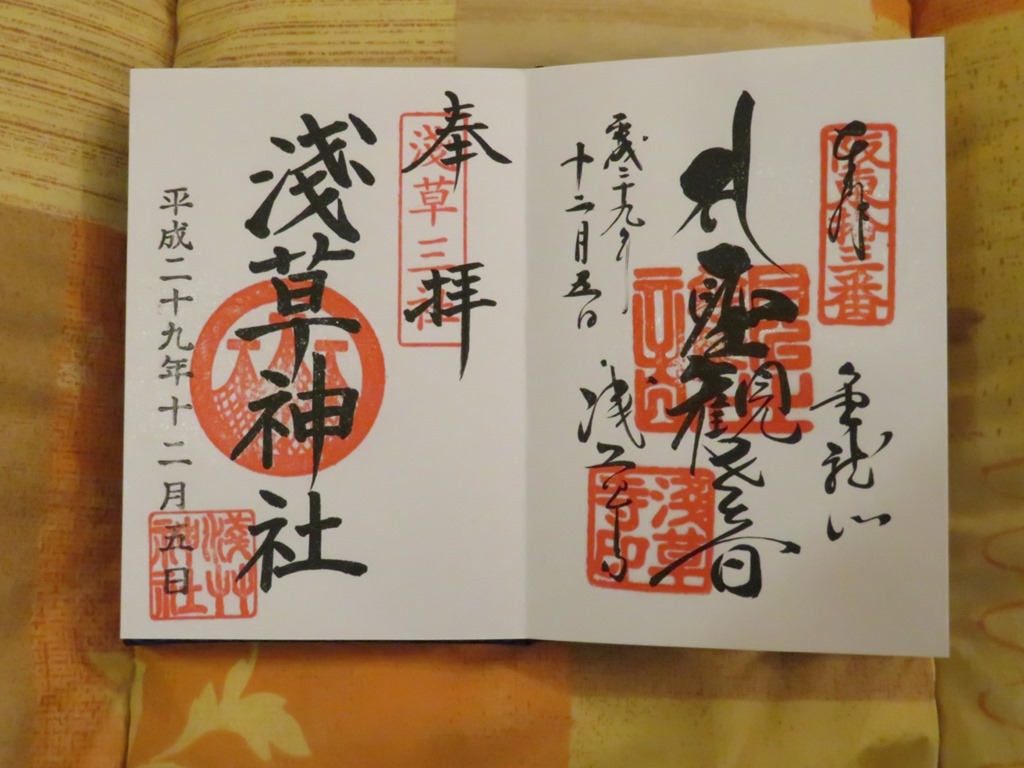 奉拝
坂東拾三番
金龍山
聖観世音
平成二十九年
十二月五日
浅草寺
浅草寺印
奉拝
淺草三社
淺草神社
平成二十九年十二月五日
淺草神社